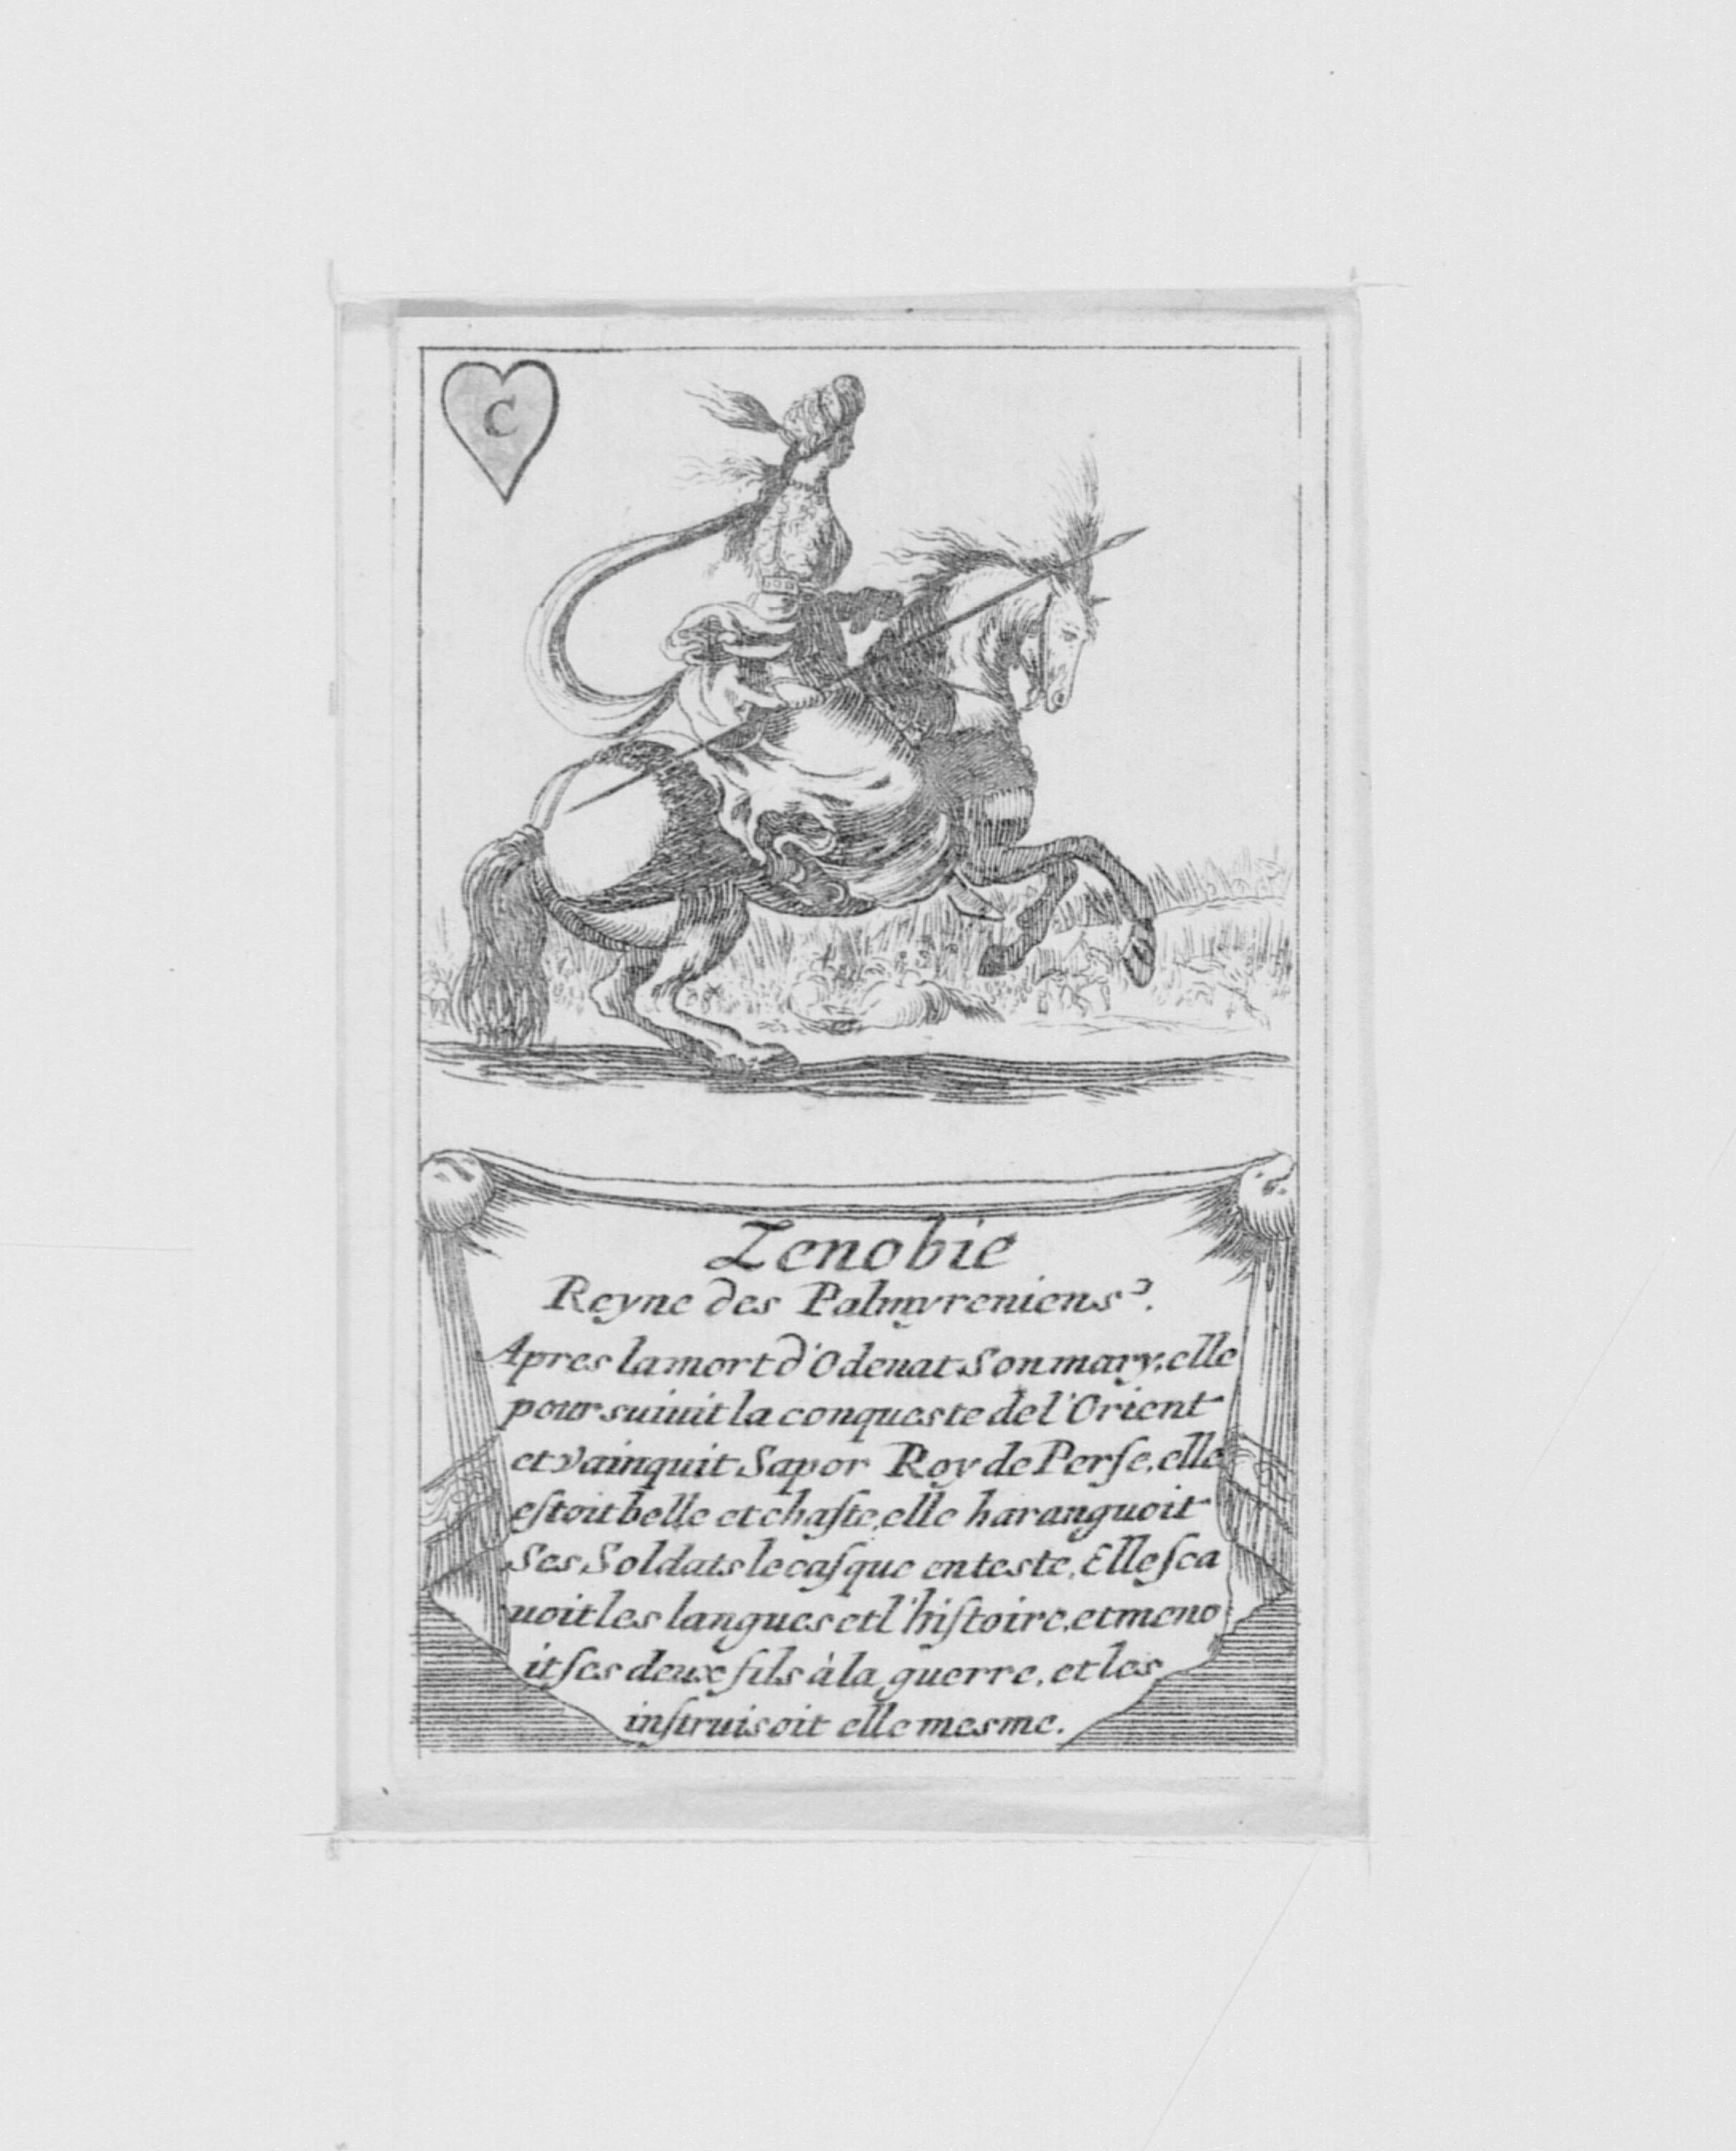 C
Zenobie
Reyne des Palmyreniens.
Apres la mort d'Odenat Son mary, elle
poursuiuit la conqueste de l'Orient
et vainquit Sapor Roy de Perſe, elle
eſtoit belle et chaſte, elle haranguoit
Ses Soldats le caſque en teste, Elle ſca
uoit les langues et l'hiſtoire, et meno
it ſes deux fils à la guerre, et les
inſtruisoit elle mesme.